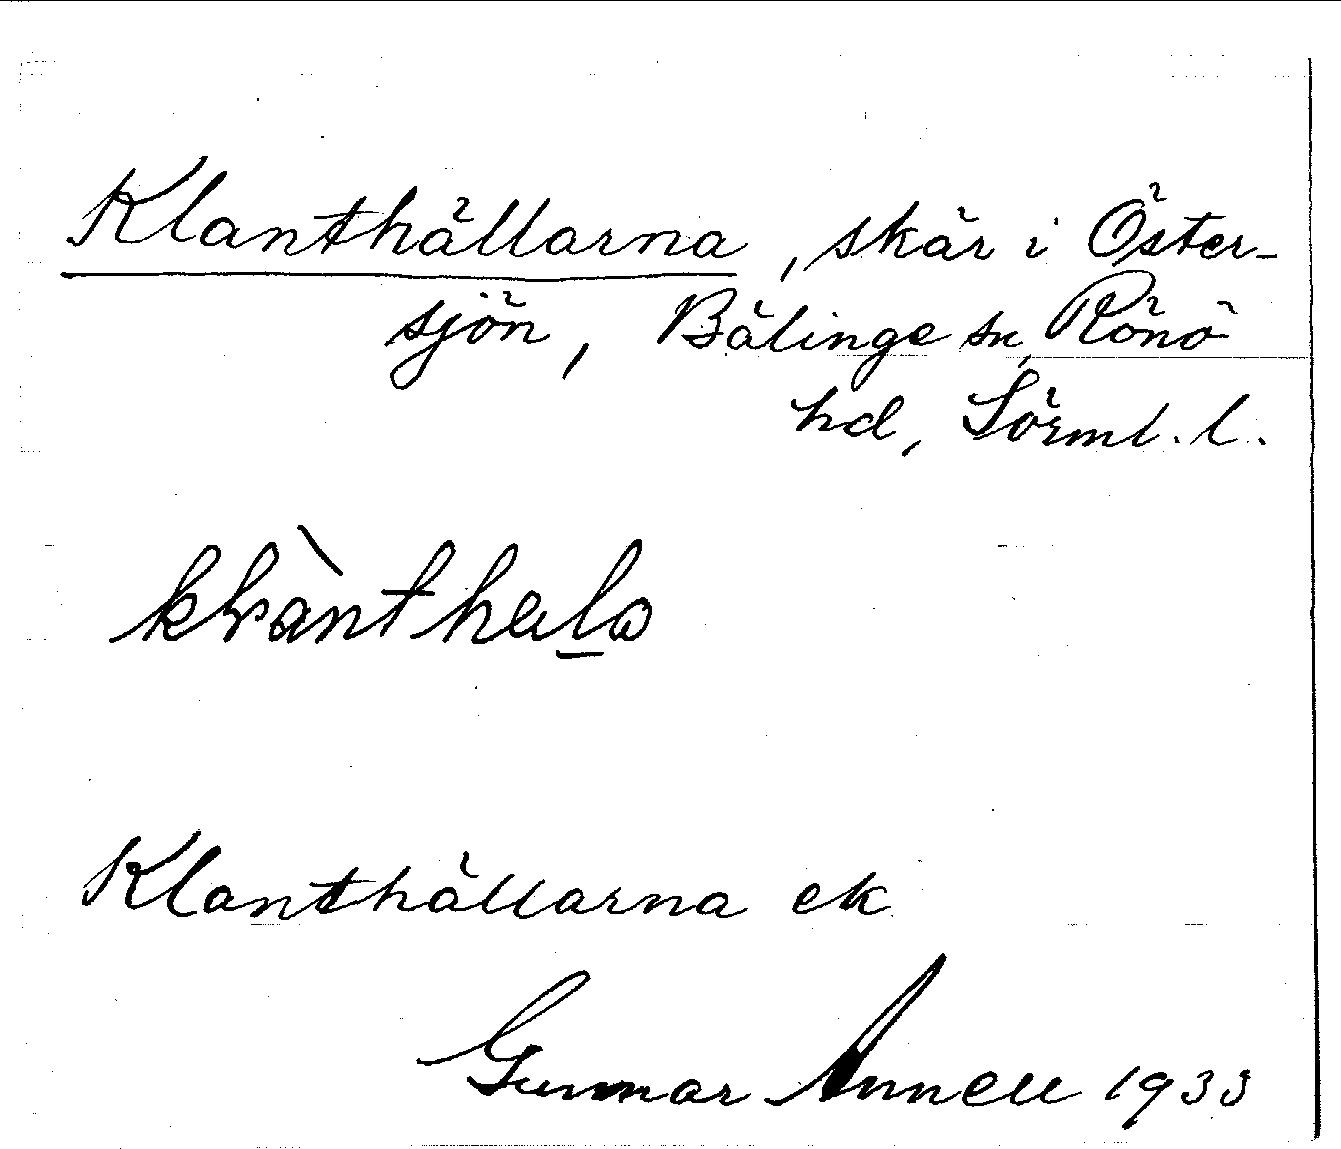 Klanthällarna, skär i Öster-
sjön, Bälinge sn, Rönö
hd, Sörml. l.
Klanthällarna ek
Gunnar Annell 1933